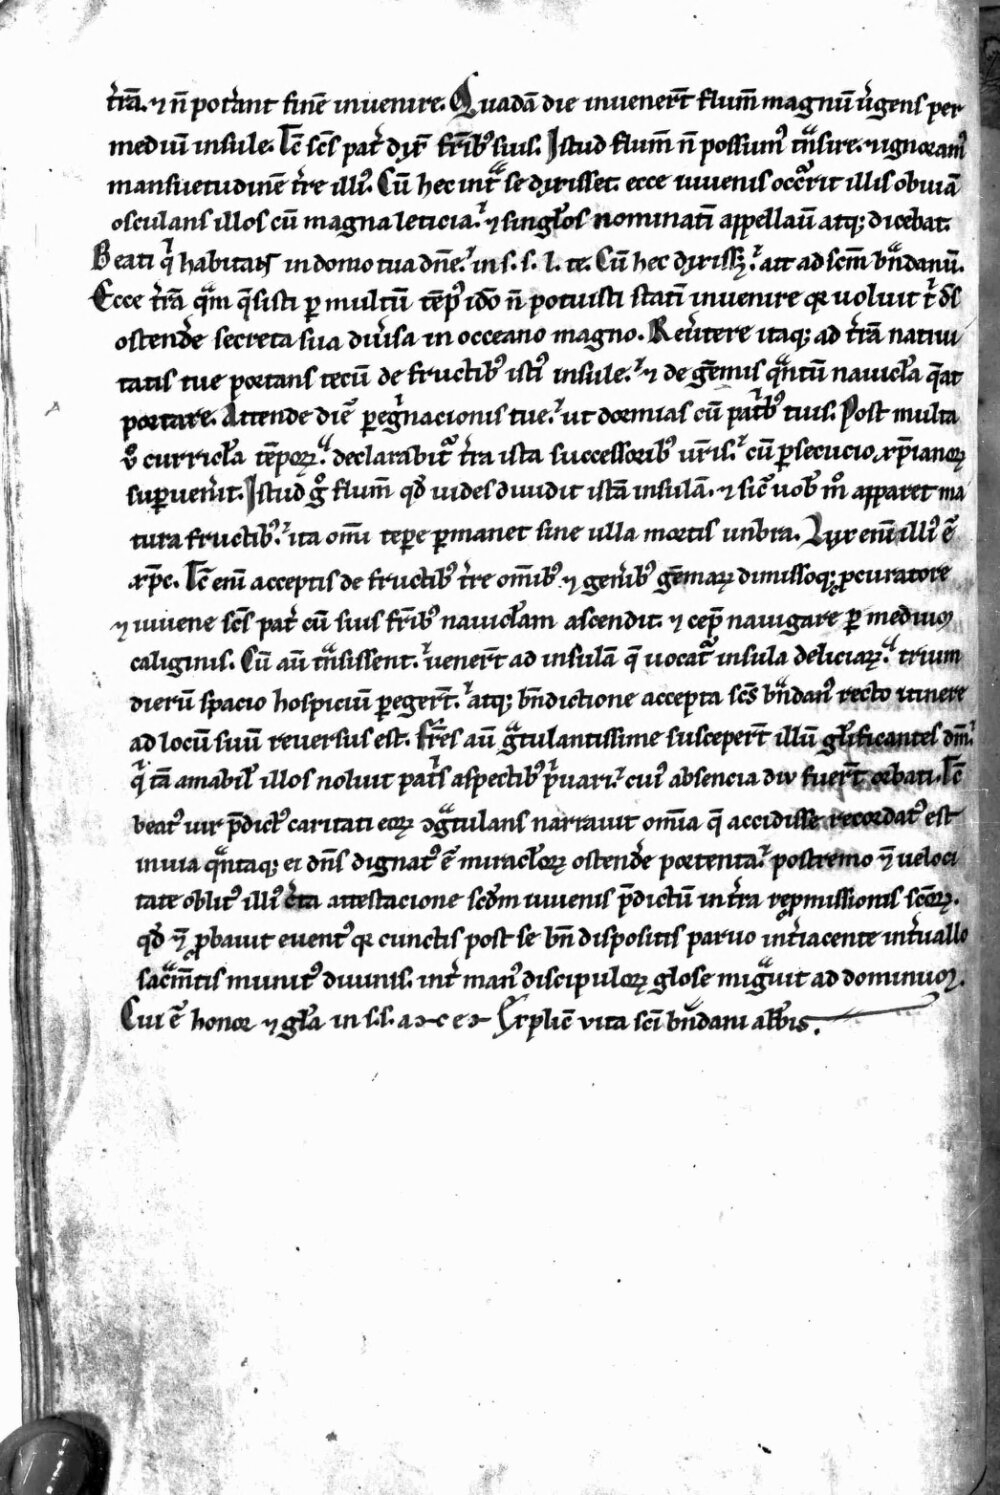 t̕rā. ⁊ n̄ pot̕ant finē inuenire. Quadā die inuener̄t flum̄ magnū u̕gens per
mediū insule. Tc̄ sc̄s pat̕ dix̄ fr̄ib᷒ suis. Istud flum̄ n̄ possum᷒ tͣnsire. ⁊ ignoram᷒
mansuetudinē t̕re illi᷒. Cū hec intͣ se dixisset. ecce iuuenis occͬrit illis obuiā
osculans illos cū magna leticia. ⁊ singlo̕s nominatī appellauit atq; dicebat.
Beati qͥ habitant in domo tua dn̄e. in s. s. l. te. Cū hec dixiss;. ait ad sc̄m bͣndanū.
Ecce t̕rā qͣm q̄sisti ꝑ multū tēp᷒ ido̅ n̄ potuisti statī inuenire qr uoluit t̕ ds̄
ostende̕ secreta sua diu̕sa in occeano magno. Reu̕tere itaq; ad t̕rā natiui
tatis tue portans tecū de fructib᷒ isti᷒ insule. ⁊ de gēmis qͣntū nauicl̕a q̄at
portare. Attende diē ꝑeg̕nacionis tue. ut dormias cū patͥb᷒ tuis. Post multa
u̕o curricl̕a tēpoꝝ. declarabitͬ t̕ra ista successorib᷒ ur̄is. cū ꝑsecucio xp̄ianoꝝ
suꝑuen̕it. Istud gͦ flum̄ qd̕ uides diuidit istā insulā. ⁊ sic̄ uob̕ mͦ apparet ma
tura fructib᷒. ita omī tēpe ꝑmanet sine ulla mortis unbra. Lux enī illi᷒ ē
xp̄c. Tc̄ enī acceptis de fructib᷒ t̕re om̄ib᷒ ⁊ gen̕ib᷒ gēmaꝝ dimissoq; ꝓcuratore
⁊ iuuene sc̄s pat̕ cū suis fr̄ib᷒ nauicl̕am ascendit. ⁊ cep̄ nauigare ꝑ medium
caliginis. Cū aū tͣnsissent. uener̄t ad insulā q̄ uocatͬ insula deliciaꝝ. trium
dierū spacio hospiciū ꝑeger̄t. atq; bn̄dictione accepta sc̄s bͣndan᷒ recto itinere
ad locū suū reuersus est. Fr̄es aū gͣtulantissime susceper̄t illū gl̕ificantes dm̄.
qͥ tā amabil̕ illos noluit pat̕s aspectib᷒ pͥuari. cui᷒ absencia diu fuer̄t orbati. Tc̄
beat᷒ uir p̄dict᷒ caritati eoꝝ ꝯgͣtulans narrauit om̄ia q̄ accidisse recordat᷒ est
in uia qͣntaq; ei dn̄s dignat᷒ ē miracl̕oꝝ ostende̕ portenta. postremo ⁊̄ ueloci
tate obit᷒ illi᷒ c̕ta attestacione scd̄m iuuenis p̄dictū in t̕ra reꝓmissionis sc̄oꝝ.
qd̕ ⁊̄ ꝓbauit euent᷒ qr cunctis post se bn̄ dispositis paruo int̕iacente int̕uallo
sacͣm̄tis munit᷒ diuinis. int̕ man᷒ discipuloꝝ glo̅se migͣuit ad dominum.
Cui ē honor ⁊ gl̕a in s. s. am̅e̅ Explic̄ vita sc̄i bͣndani abb̕is.